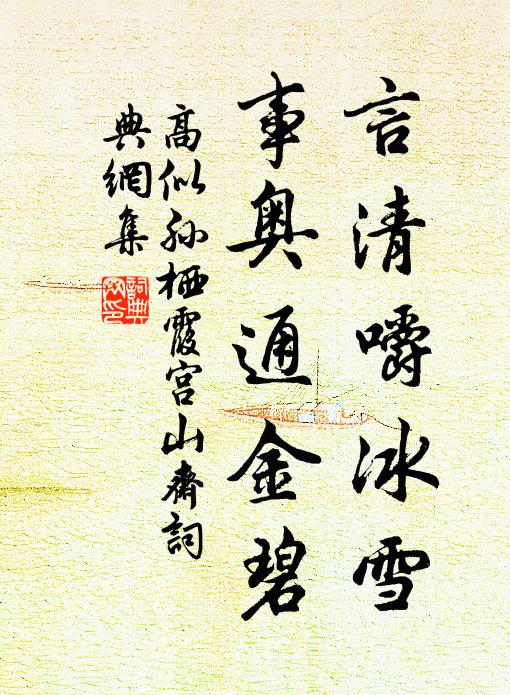 言清嚼冰雪
事奥通金碧
高似孙栖霞宫山斋詞
典網集
詞典網印